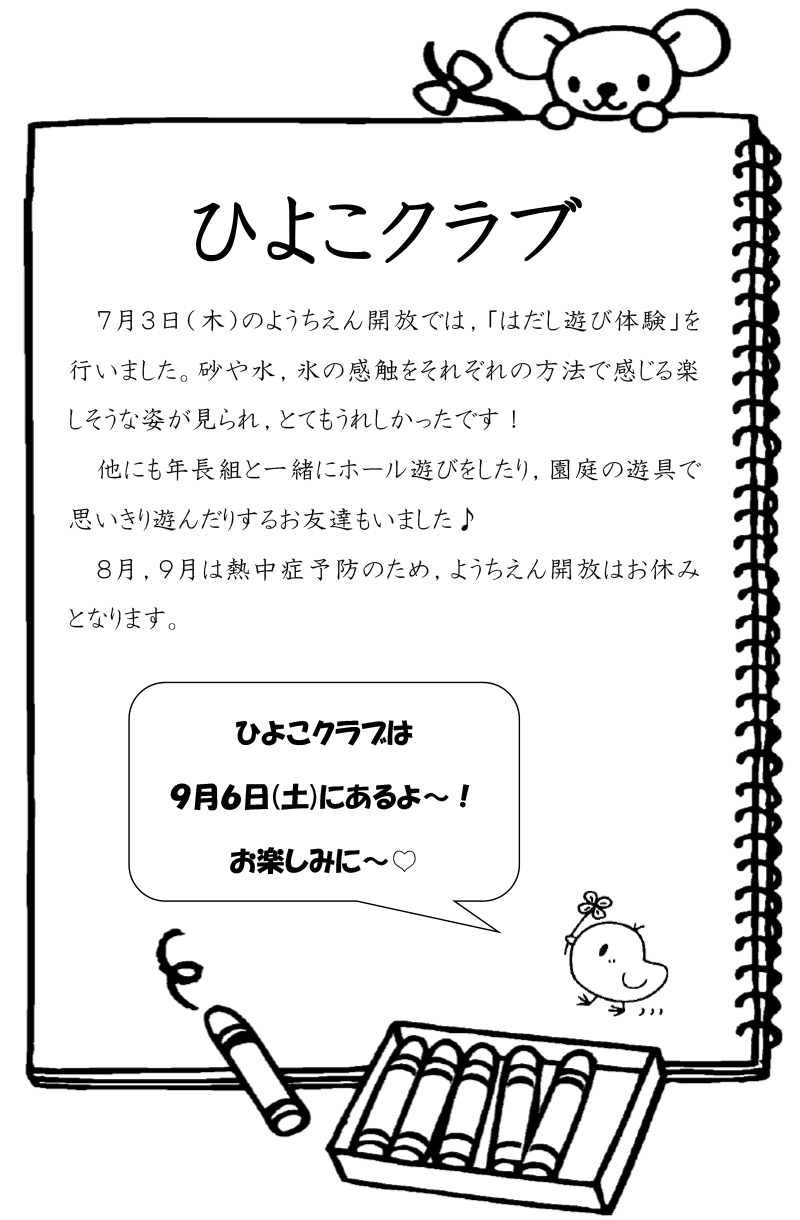 ひよこクラブ
7月3日(木)のようちえん開放では,「はだし遊び体験」を
行いました。砂や水,氷の感触をそれぞれの方法で感じる楽
しそうな姿が見られ,とてもうれしかったです!
他にも年長組と一緒にホール遊びをしたり,園庭の遊具で
思いきり遊んだりするお友達もいました♪
8月,9月は熱中症予防のため,ようちえん開放はお休み
となります。
ひよこクラブは
9月6日(土)にあるよ~!
お楽しみに~♡